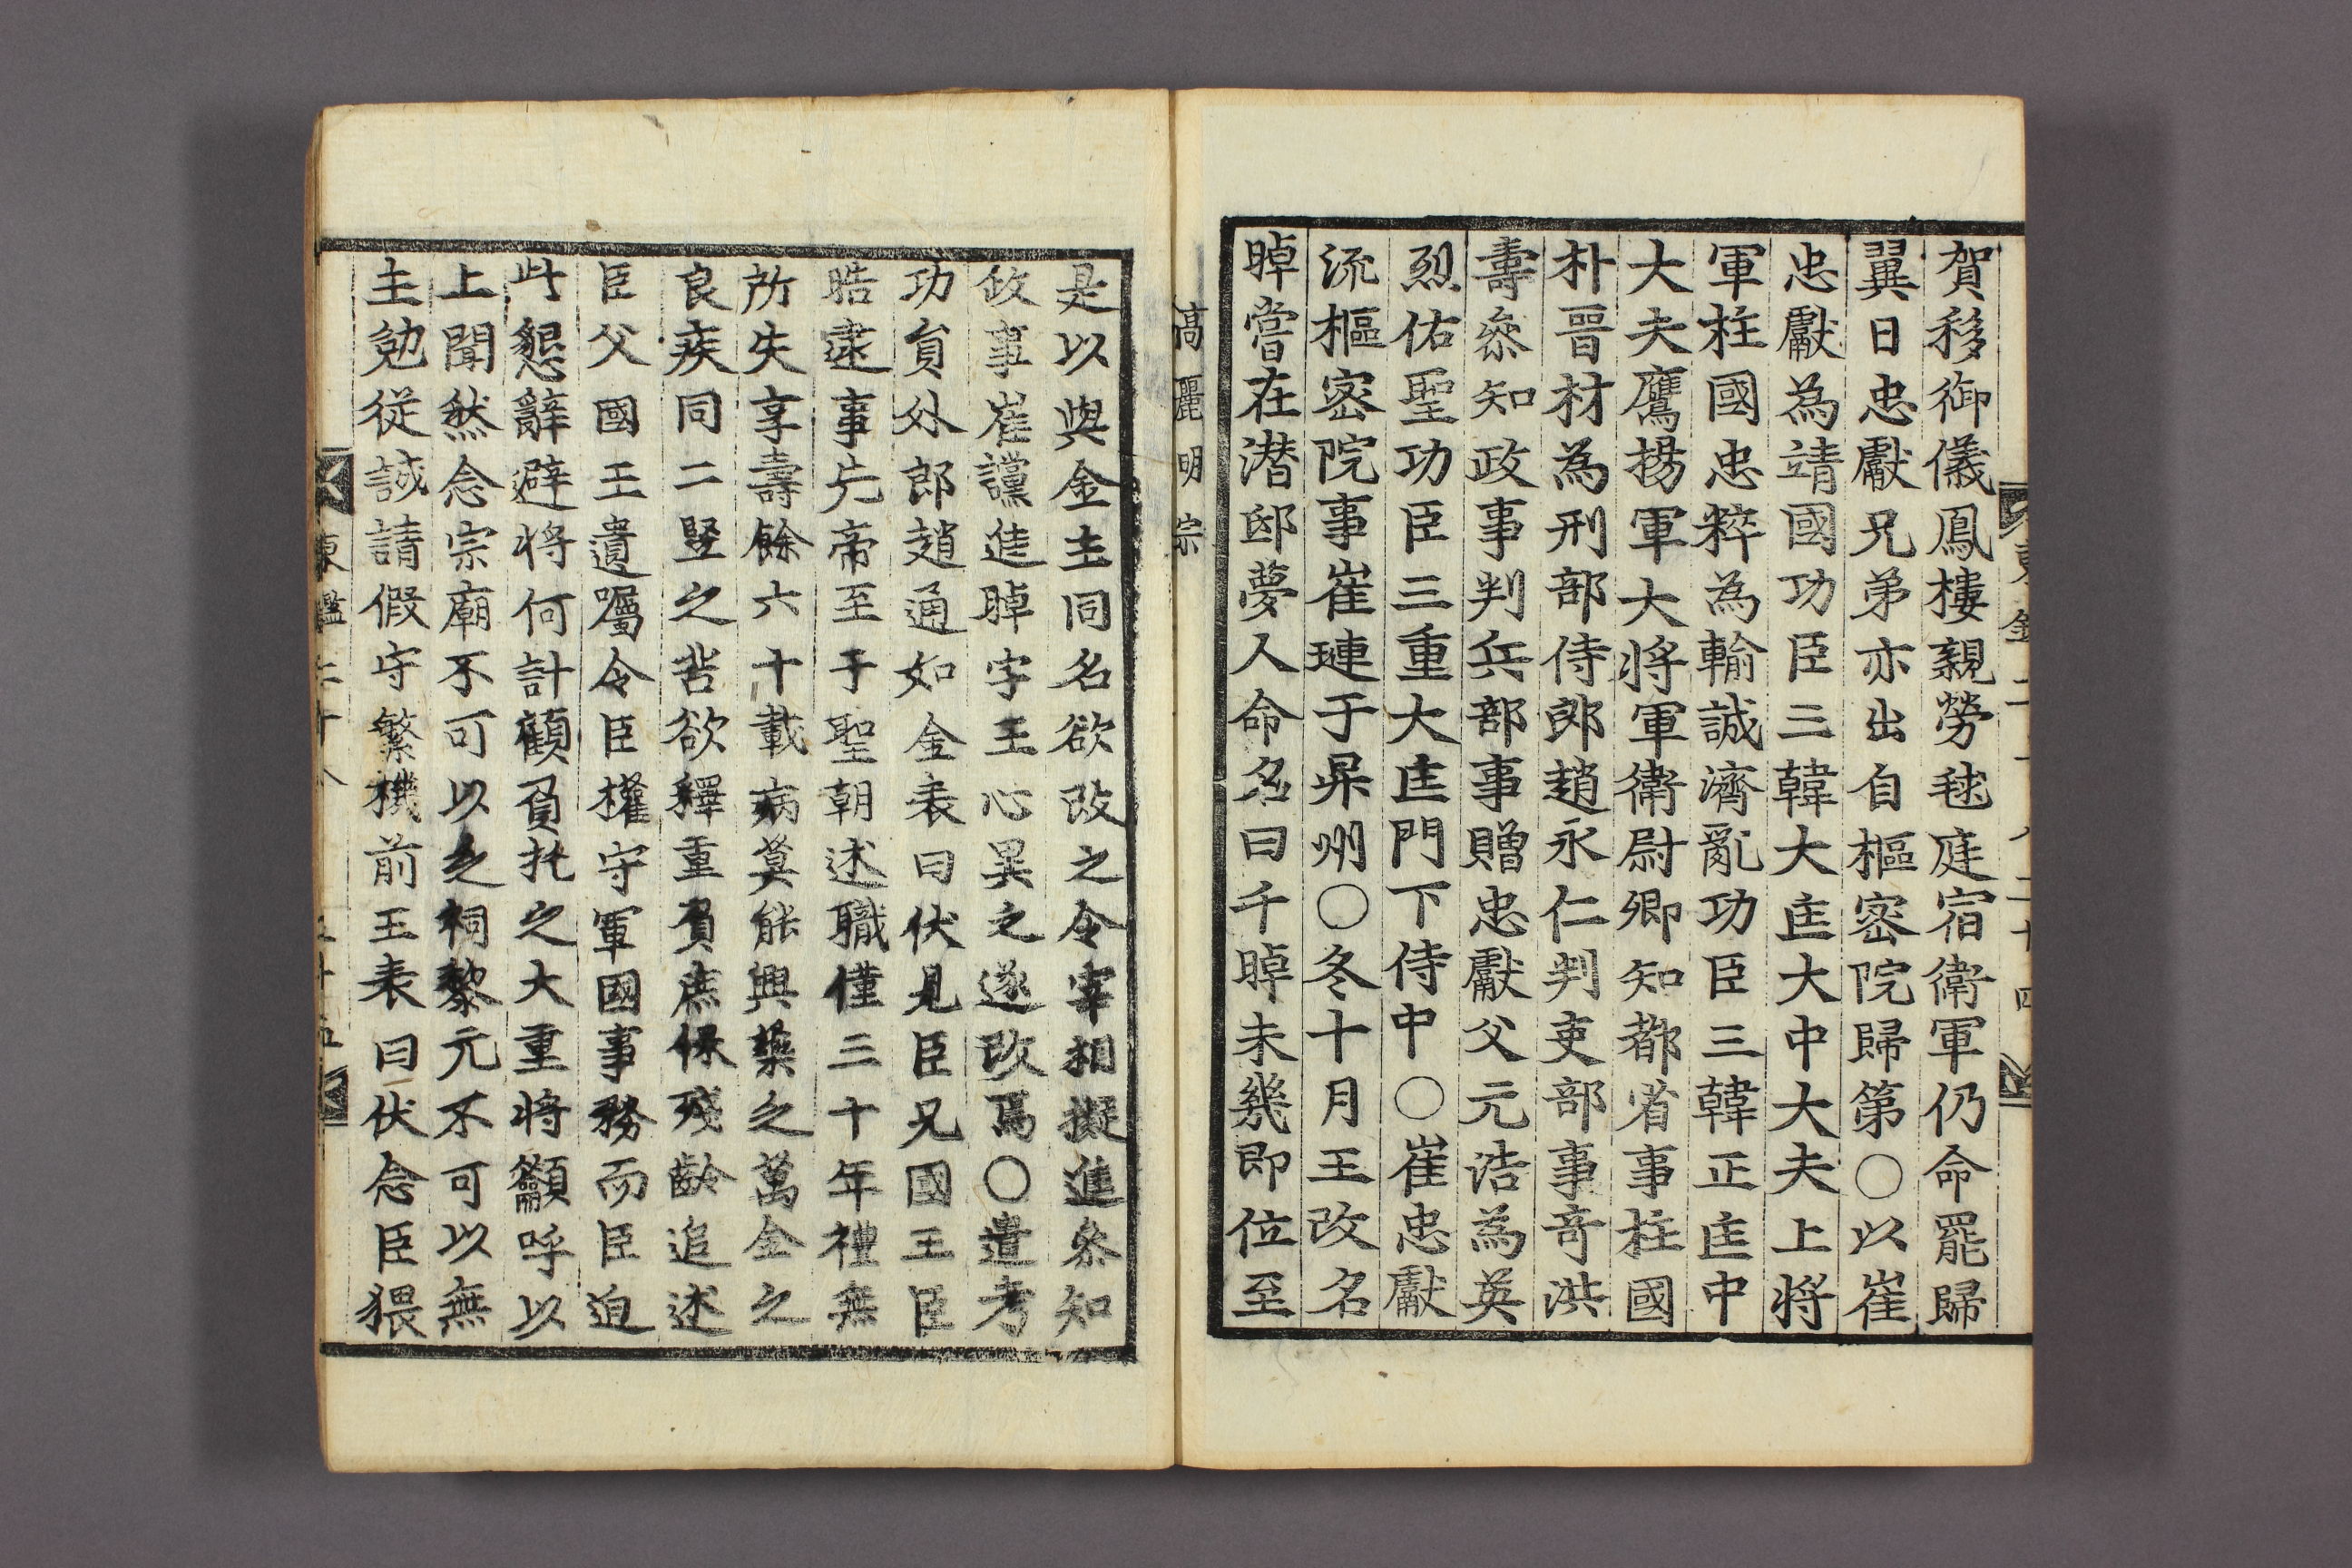 賀移御儀鳳樓親勞毬庭宿衛軍仍命罷歸
翼日忠獻兄弟亦出自樞密院歸第○以崔
忠獻為靖國功臣三韓大匡大中大夫上將
軍柱國忠粹為輸誠濟亂功臣三韓正匡中
大夫鷹揚軍大將軍衛尉卿知都省事柱國
朴晉材為刑部侍郎趙永仁判吏部事奇洪
壽叅知政事判兵部事贈忠獻父元浩為英
烈佑聖功臣三重大匡門下侍中○崔忠獻
流樞密院事崔璉于杲州○冬十月王改名
晫嘗在潛邸夢人命名曰千晫未幾即位至
高麗明宗
是以與金主同名欲改之令宰相擬進叅知
政事崔讜進晫字王心異之遂改焉○遣考
功員外郎趙通如金表曰伏見臣兄國王臣
晧逮事先帝至于聖朝述職僅三十年禮無
所失享壽餘六十載病莫能興藥之萬金之
良疾同二竪之苦欲釋重負庶保殘齡追述
臣父國王遺囑令臣權守軍國事務而臣迫
此懇辭避將何計顧負托之大重將籲呼以
上聞然念宗廟不可以乏祠黎元不可以無
主勉從誠請假守繁機前王表曰伏念臣猥